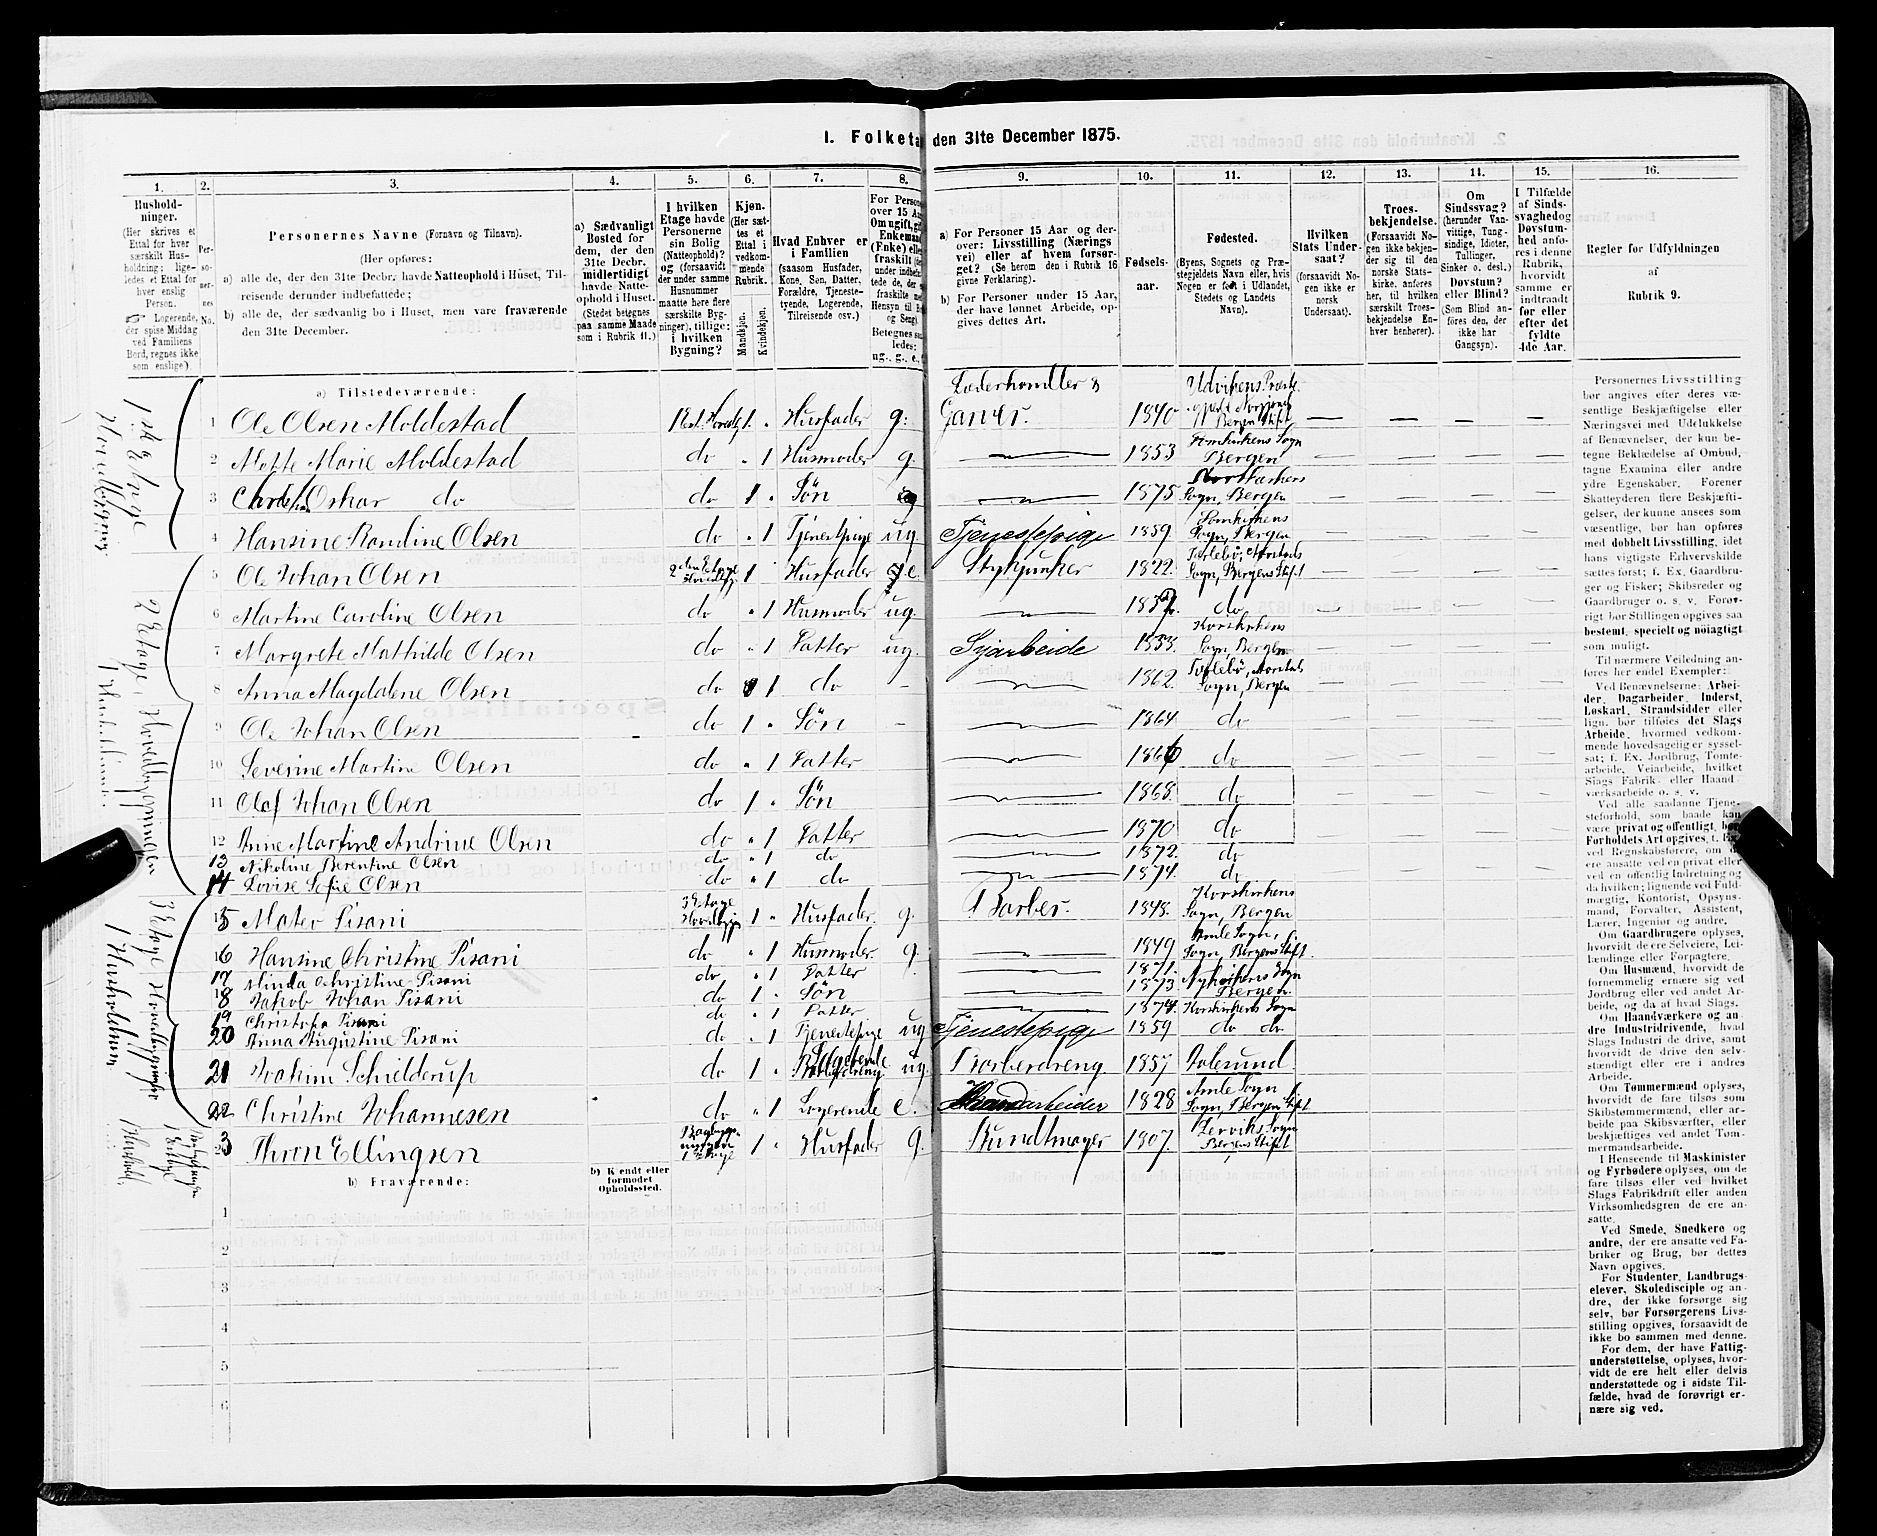 1. Folketæ den 31te December 1875.
1. 2. 3. 4. 5. 6. 7. 8. 9. 10. 11. 12. 13. 14. 15. 16.
Hushold-
ninger.
(Her skrives et
Ettal for hver
særskilt Hus-
holdning; lige-
ledes et Ettal for
hver enslig
Person.
Logerende,
der spise Middag
ved Familiens
Bord, regnes ikke
som enslige).
Per-
so-
ner-
nes
No.
Personernes Navne (Fornavn og Tilnavn).
(Her opføres:
a) alle de, der den 31te Decbr. havde Natteophold i Huset, Til-
reisende derunder indbefattede;
b) alle de, der sædvanlig bo i Huset, men vare fraværende
den 31te December.
a) Sædvanligt
Bosted for
dem, der den
31te Decbr.
midlertidigt
havde Natte-
ophold i Huset.
(Stedet betegnes
paa samme Maade
som i Rubrik 11.)
I hvilken
Etage havde
Personerne
sin Bolig
(Natteophold)?
og (forsaavidt
der under samme
Husnummer
maatte høre flere
særskilte Byg-
ninger), tillige:
i hvilken
Bygning?
Kjøn.
(Her sæt-
tes et
Ettal i
vedkom-
mende
Rubrik.
Mandkjøn.
Kvindekjøn.
Hvad Enhver er
i Familien
(saasom Husfader,
Kone, Søn, Datter,
Forældre, Tjeneste-
tyende, Logerende,
Tilreisende osv.)
For Perso
over 15 Aa
Om ugift, g
Enkema
(Enke) elle
fraskilt
under indbef
tede de, de
fraskilte m
Hensyn til
og Seng).
Betegnes sa
ledes:
ug., g., e.,
a) For Personer 15 Aar og der-
over: Livsstilling (Nærings
vei) eller af hvem forsør-
get? (Se herom den i Rubrik 16
givne Forklaring).
b) For Personer under 15 Aar,
der have lønnet Arbeide, op-
gives dettes Art.
Fødsels-
aar.
Fødested.
(Byens, Sognets og Præs-
tegjeldets Navn eller, hvis
Nogen er født i Udlandet,
Stedets og Landets
Navn).
Hvilken
Stats Under-
saat?
(forsaavidt No-
gen ikke er
norsk
Undersaat).
Troes-
bekjendelse.
(Forsaavidt No-
gen ikke bekjen-
der sig til den
norske Stats-
kirke, anføres
her, til hvilken
særskilt Troes-
bekjendelse En-
hver henhører).
Om
Sindssvag?
(herunder Van-
vittige, Tung-
sindige, Idioter,
Tullinger,
Sinker o. desl.)
Døvstum?
eller Blind?
(Som Blind an-
føres den, der
ikke har
Gangsyn).
I Tilfælde
af Sinds-
svaghed og
Døvstum-
hed anfø-
res i denne
Rubrik,
hvorvidt
samme er
indtraadt
før eller
efter det
fyldte
4de Aar.
Regler for Udfyldningen
af
Rubrik 9.
a) Tilstedeværende:
1 Ole Olsen Moldestad 1 Husfader g. Læderhandler & Garver. 1840
2 Mette Marie Moldestad do 1 Husmoder g. 1853 Domkirkens Sogn Bergen
3 Christian Oskar do do 1 Søn 1875 Korskirkens Sogn, Bergen
4 Hansine Randine Olsen do 1 Tjenestepige ug Tjenestepige 1859 Domkirkens Sogn, Bergen
5 Ole Johan Olsen 1 Husfader e. Stykjunker 1822 Sogn, Bergens Stift
6 Martine Caroline Olsen do 1 Husmoder ug. do
7 Margrete Mathilde Olsen do 1 Datter ug. Syarbeide 1853. Korskirkens Sogn, Bergen
8 Anna Magdalene Olsen do 1 do 1862. Sogn, Bergen
9 Ole Johan Olsen do 1 Søn 1864 do
10 Severine Martine Olsen do 1 Datter 1866 do
11 Olaf Johan Olsen do 1 Søn 1868. do
12 Anne Martine Andrine Olsen do 1 Datter 1870 do
13 Nikoline Berentine Olsen do 1 do 1872. do
14 Lovise Sofie Olsen do 1 do 1874. do
15 Mateo Pisani 3 Etage Hovedbygn 1 Husfader. g. Barber. 1848. Korskirkens Sogn, Bergen
16 Hansine Christine Pisani do 1 Husmoder. g. 1849 Amle Sogn, Sogn, Bergens Stift
17 Minda Christine Pisani do 1 Datter 1871. Nykirkens Sogn
18 Jakob Johan Pisani do 1 Søn 1873. Bergen
19 Christofa Pisani do 1 Datter 1874. Korskirkens Sogn
20 Anna Augustine Pisani do 1 Tjenestepige ug Tjenestepige 1859 do do
21 Joakim Schielderup do 1 Logerende ug. Barberdreng 1857 Aalesund
22 Christine Johannesen do 1 Logerende e. Haandarbeider 1828 Amle Sogn Sogn, Bergen Stift
23 Thron Ellingsen 1 Etage 1 Husfader g. Bundtmager 1807. Sogn Bergens Stift
b) Fraværende:
b) Kjendt eller
formodet
Opholdssted.
1
2
3
4
5
6
2 Etage, Hovedbygningen
1 Husholdning
3 Etage Hovedbygningen
1 Husholdning
Personernes Livsstilling
bør angives efter deres væ-
sentlige Beskjæftigelse eller
Næringsvei med Udelukkelse
af Benævnelser, der kun be-
tegne Beklædelse af Ombud,
tagne Examina eller andre
ydre Egenskaber. Forener
Skatteyderen flere Beskjæfti-
gelser, der kunne ansees som
væsentlige, bør han opføres
med dobbelt Livsstilling, idet
hans vigtigste Erhvervskilde
sættes først; f. Ex. Gaardbru-
ger og Fisker; Skibsreder og
Gaardbruger o. s. v. Forøv-
rigt bør Stillingen opgives saa
bestemt, specielt og nøiagtigt
som muligt.
Til nærmere Veiledning an-
føres her endel Exempler:
Ved Benævnelserne: Arbei-
der, Dagarbeider, Inderst,
Løskarl, Strandsidder eller
lign. bør tilføies det Slags
Arbeide, hvormed vedkom-
mende hovedsagelig er syssel-
sat; f. Ex. Jordbrug, Tomte-
arbeide, Veiarbeide, hvilket
Slags Fabrik- eller Haand-
værksarbeide o. s. v.
Ved alle saadanne Tjene-
steforhold, som baade kan
være privat og offentligt, bør
Forholdets Art opgives, t. Ex.
ved Regnskabsførere, om de
ere ansatte ved en privat eller
ved en offentlig Indretning og
da hvilken; lignende ved Fuld-
mægtig, Kontorist, Opsyns-
mand, Forvalter, Assistent,
Lærer, Ingeniør og andre.
Om Gaardbrugere oplyses,
hvorvidt de ere Selveiere, Lei-
lændinge eller Forpagtere.
Om Husmænd, hvorvidt de
fornemmelig ernære sig ved
Jordbrug eller ved andet Ar-
beide, og da af hvad Slags.
Om Haandværkere og an-
dre Industridrivende, hvad
Slags Industri de drive, samt
hvorvidt de drive den selv-
stændigt eller ere i andres
Arbeide.
Om Tømmermænd oplyses,
hvorvidt de fare tilsøs som
Skibstømmermænd, eller ar-
beide paa Skibsværfter, eller
beskjæftiges ved andet Tøm-
mermandsarbeide.
I Henseende til Maskinister
og Fyrbødere oplyses, om de
fare tilsøs eller ved hvilket
Slags Fabrikdrift eller anden
Virksomhedsgren de ere an-
satte.
Ved Smede, Snedkere og
andre, der ere ansatte ved Fa-
briker og Brug, bør dettes
Navn opgives.
For Studenter, Landbrugs-
elever, Skoledisciple og an-
dre, der ikke forsørge sig
selv, bør Forsørgerens Livs-
stilling opgives, forsaavidt de
ikke bo sammen med denne.
For dem, der have Fattig-
understøttelse, oplyses, hvor-
vidt de ere helt eller delvis
understøttede og i sidste Til-
fælde, hvad de forøvrigt er-
nære sig ved.